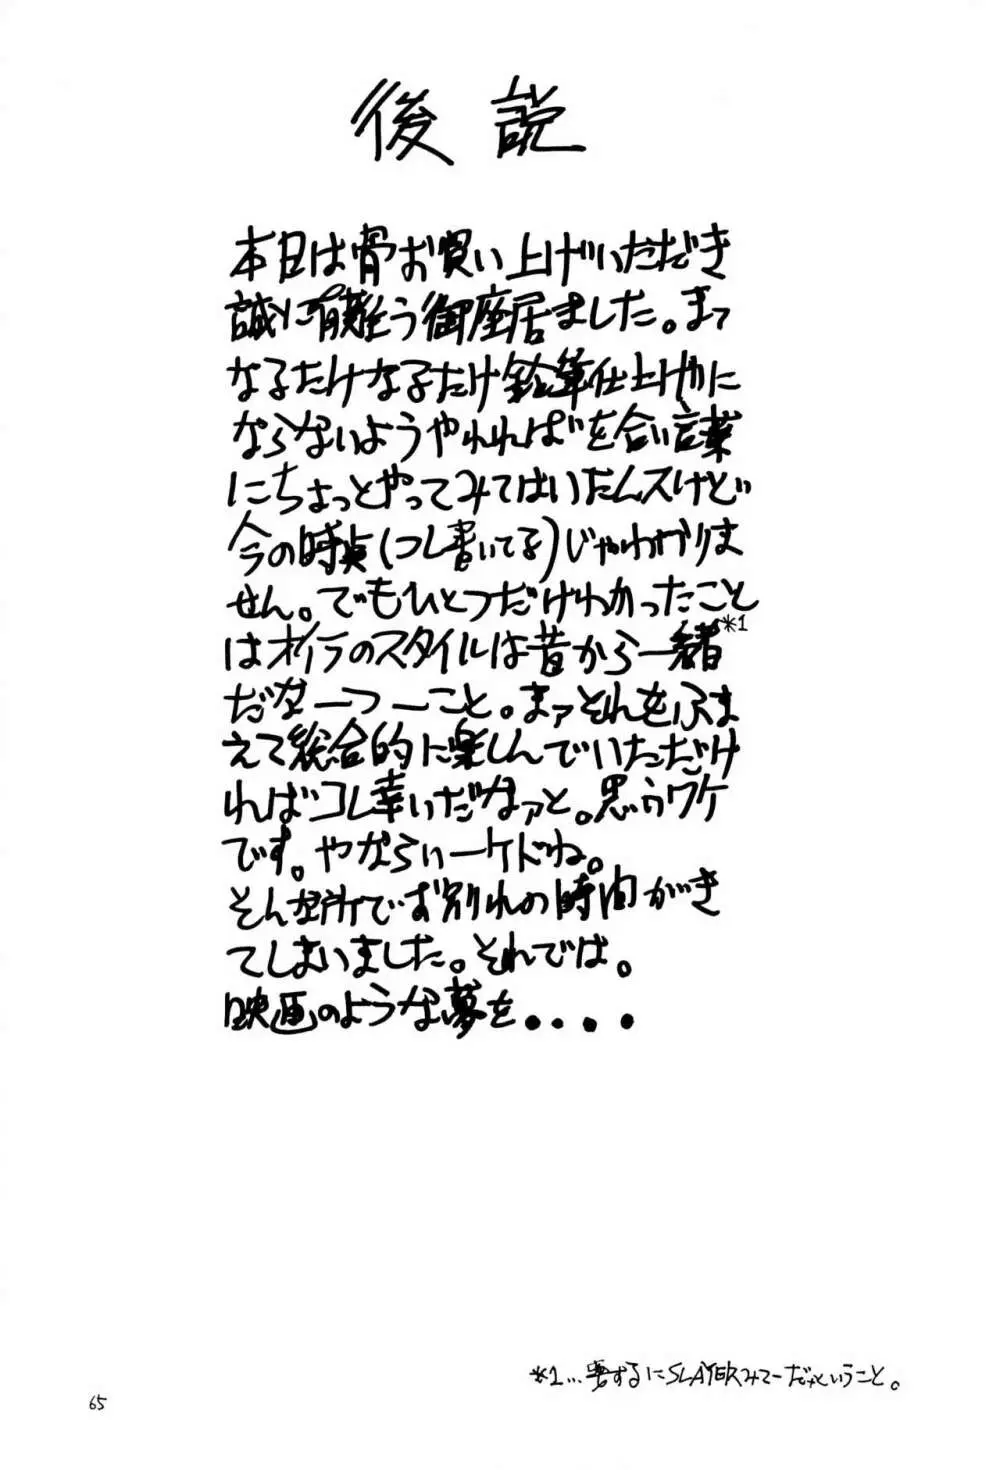 後説
本日は骨お買い上げいただき
誠に有難う御座居ました。まァ
なるたけなるたけ鉛筆仕上げやに
ならないようやれればを合い言葉
にちょっとやってみてはいたんスけど
今の時点(コレ書いてる)じゃわかりま
せん。でもひとつだけわかったこと
はオイラのスタイルは昔から一緒*1
だなーつーこと。まァそれをふま
えて総合的に楽しんでいただけ
ればコレ幸いだなァと。思うワケ
です。やならいーケドね。
そんな所でお別れの時間がき
てしまいました。それでは。
映画のような夢を....
*1...要するにSLAYERみてーだということ。
65